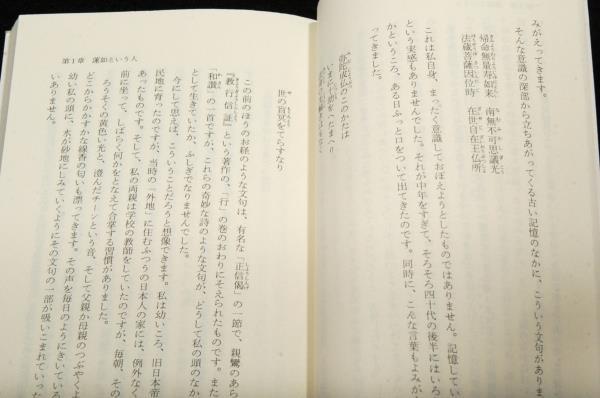 みがえってきます。
そんな意識の深部から立ちあがってくる古い記憶のなかに、こういう文句がありま
帰命無量寿如来　南無不可思議光
法蔵菩薩因位時　在世自在王仏所
これは私自身、まったく意識しておぼえようとしたものではありません。記憶してい
という実感もありませんでした。それが中年をすぎて、そろそろ四十代の後半にはいろ
かというころ、ある日ふっと口をついて出てきたのです。同時に、こんな言葉もよみが
ってきました。
弥陀成仏のこのかたは
いまに十劫をへたまへり
世の盲冥をてらすなり
この前のほうのお経のような文句は、有名な「正信偈」の一節で、親鸞のあら
『教行信証』という著作の、「行」の巻のおわりにそえられたものです。また
「和讃」の一首ですが、これらの奇妙な詩のような文句が、どうして私の頭のなか
として生きていたか、ふしぎでなりませんでした。
今にして思えば、こういうことだろうと想像できます。私は幼いころ、旧日本帝
民地に育ったのですが、当時の「外地」に住むふつうの日本人の家には、例外なく
あったものです。そして、私の両親は学校の教師をしていたのですが、毎朝、その
前に坐って、しばらく何かをとなえて合掌する習慣がありました。
ろうそくの黄色い光と、澄んだチーンという音、そして父親か母親のつぶやくよ
どこからかかすかな線香の匂いも漂ってきます。その声を毎日のようにきいている
幼い私の頭に、水が砂地にしみていくようにその文句の一部が吸いこまれていった
いありません。
第1章　蓮如という人